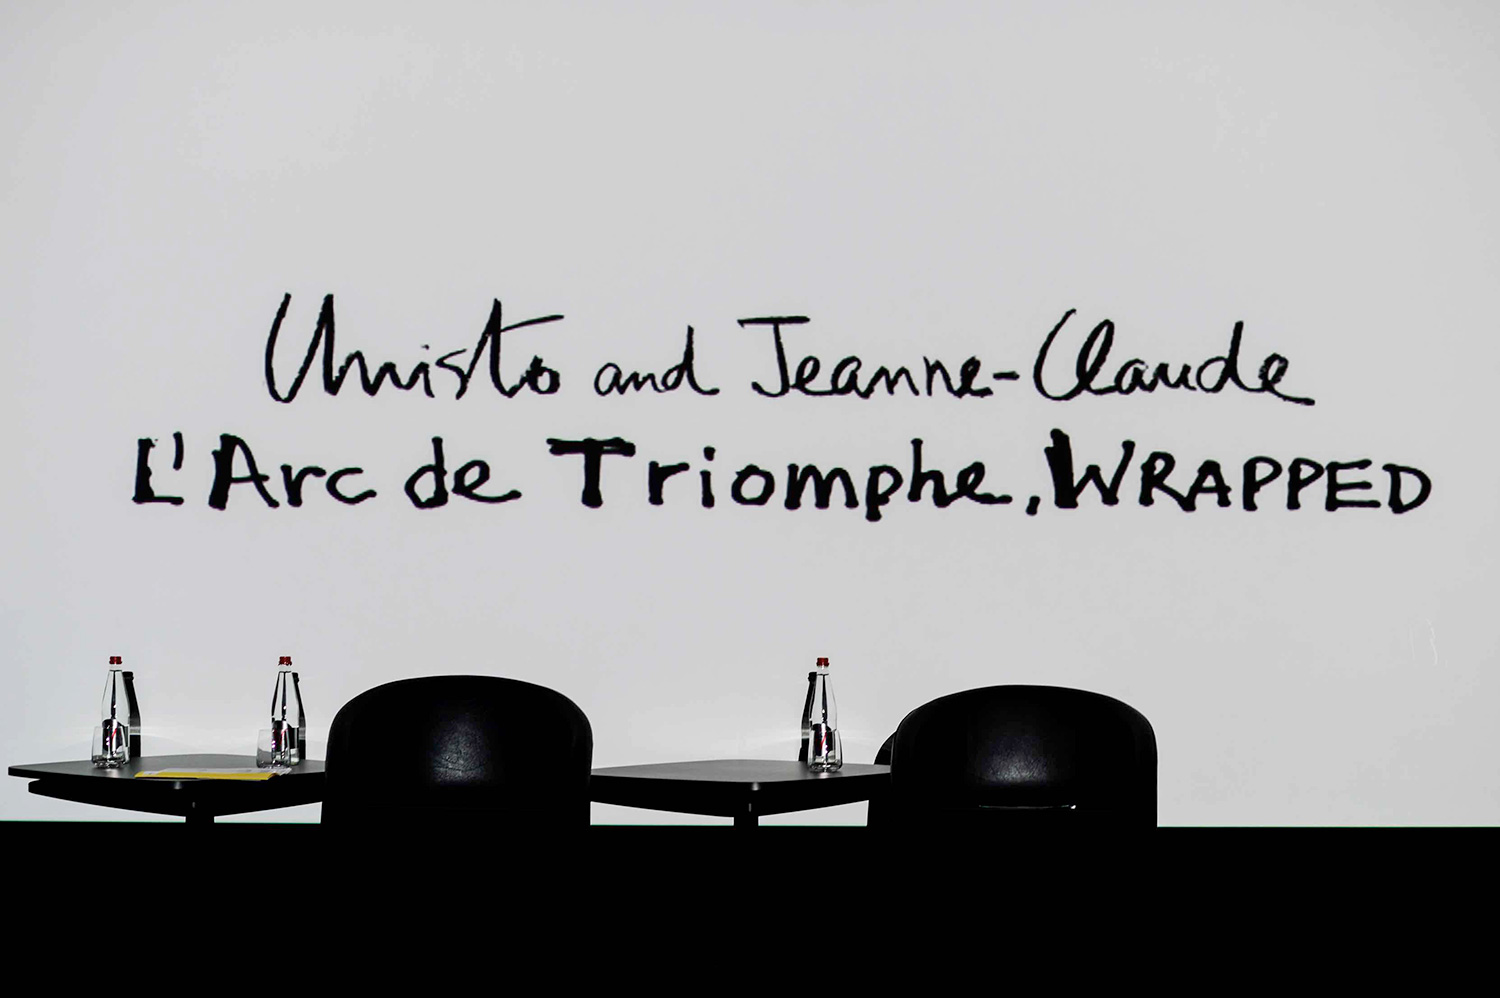 Christo and Jeanne-Claude
L'Arc de Triomphe, WRAPPED